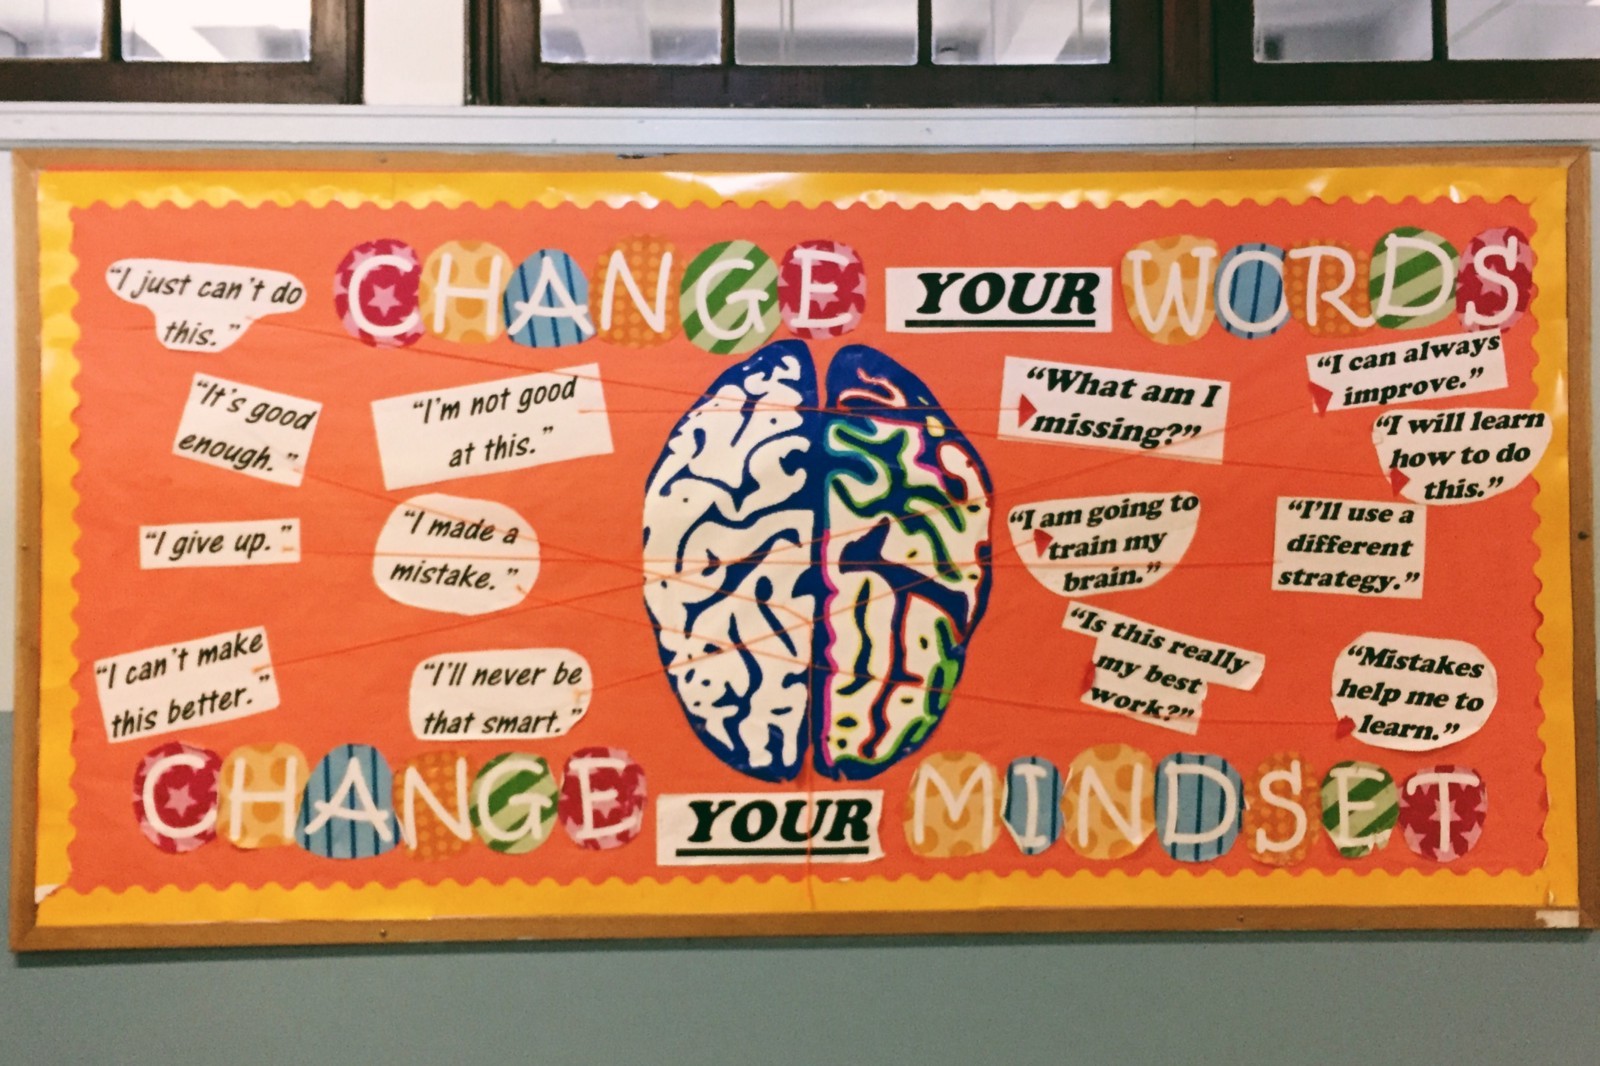 CHANGE YOUR WORDS
“I just can't do
this.”
“It's good
enough.”
“I'm not good
at this.”
“I give up.”
“I made a
mistake.”
“I can't make
this better.”
“I'll never be
that smart.”
“What am I
missing?”
“I can always
improve.”
“I will learn
how to do
this.”
“I am going to
train my
brain.”
“I'll use a
different
strategy.”
“Is this really
my best
work?”
“Mistakes
help me to
learn.”
CHANGE YOUR MINDSET